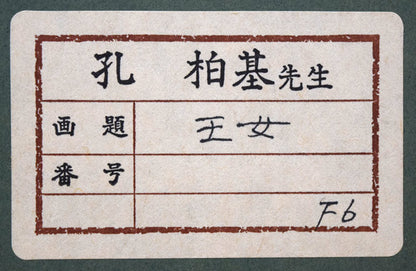 孔 柏基先生
画題 王女
番号
F6